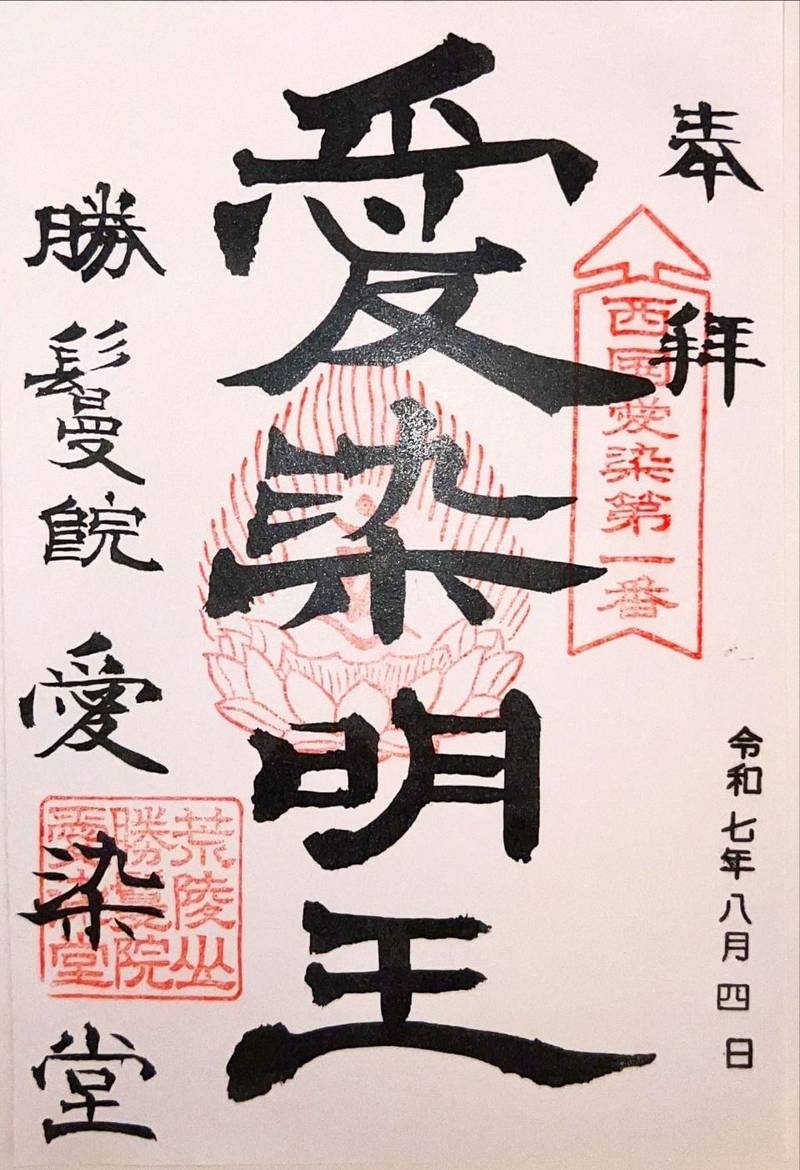 奉拝
西國愛染第一番
令和七年八月四日
愛染明王
勝鬘院愛染堂
荒陵山
勝鬘院
愛染堂